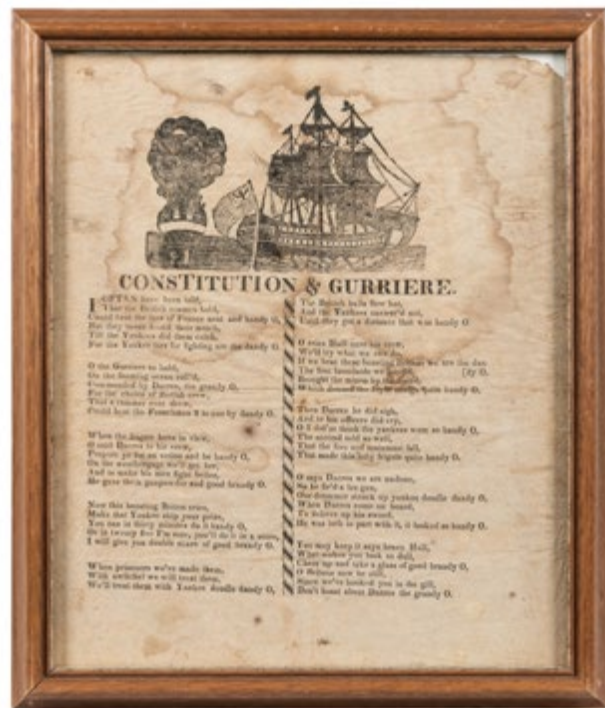 CONSTITUTION & GURRIERE.
I OFTEN have been told,
That the British seamen bold,
Could beat the tars of France neat and handy O,
But they never found their match,
Till the Yankees did them catch,
For the Yankee tars for fighting are the dandy O.
O the Gurriere so bold,
On the foaming ocean roll'd,
Commanded by Dacres, the grandy O,
For the choice of British crew,
That a rammer ever drew,
Could beat the Frenchmen to one by dandy O.
When the frigate hove in view,
O said Dacres to his crew,
Prepare ye for an action and be handy O,
On the weathergage we'll get her,
And to make his men fight better,
He gave them gunpowder and good brandy O.
Now this boasting Briton cries,
Make that Yankee ship your prize,
You can in thirty minutes do it handy O,
Or in twenty five I'm sure, you'll do it in a score,
I will give you double share of good brandy O.
When prisoners we've made them,
With switchel we will treat them,
We'll treat them with Yankee doodle dandy O,
The British balls flew hot,
And the Yankees answer'd not,
Until they got a distance that was handy O
O cries Hull unto his crew,
We'll try what we can do,
If we beat these boasting Britons we are the dan-
The first broadside we [dy O.
Brought the mizen by the
Which doused the royal ensign quite handy O.
Then Dacres he did sigh,
And to his officers did cry,
O I did'nt think the yankees were so handy O,
The second told so well,
That the fore and mainmast fell,
That made this lofty frigate quite handy O.
O says Dacres we are undone,
So he fir'd a lee gun,
Our drummer struck up yankee doodle dandy O,
When Dacres came on board,
To deliver up his sword,
He was loth to part with it, it looked so handy O.
You may keep it says brave Hull,
What makes you look so dull,
Cheer up and take a glass of good brandy O,
O Britons now be still,
Since we've hooked you in the gill,
Don't boast about Dacres the grandy O.